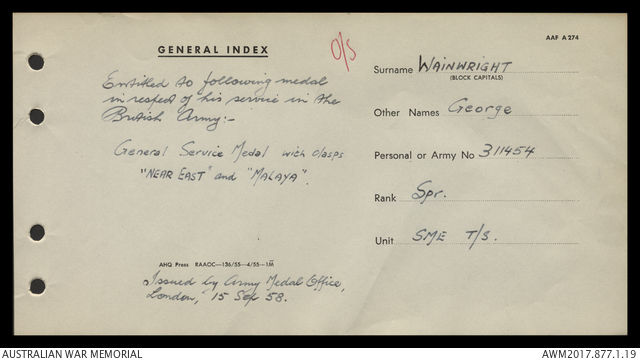 AAF A274
GENERAL INDEX
O/S
Entitled to following medal
in respect of his service in the
British Army:-
General Service Medal with clasps
"NEAR EAST" and "MALAYA".
AHQ Press RAACC—136/55—4/55—1M
Issued by Army Medal Office,
London, 15 Sep 58.
Surname WAINWRIGHT
(BLOCK CAPITALS)
Other Names George
Personal or Army No 311454
Rank Spr.
Unit SME T/S.
AUSTRALIAN WAR MEMORIAL
AWM2017.877.1.19